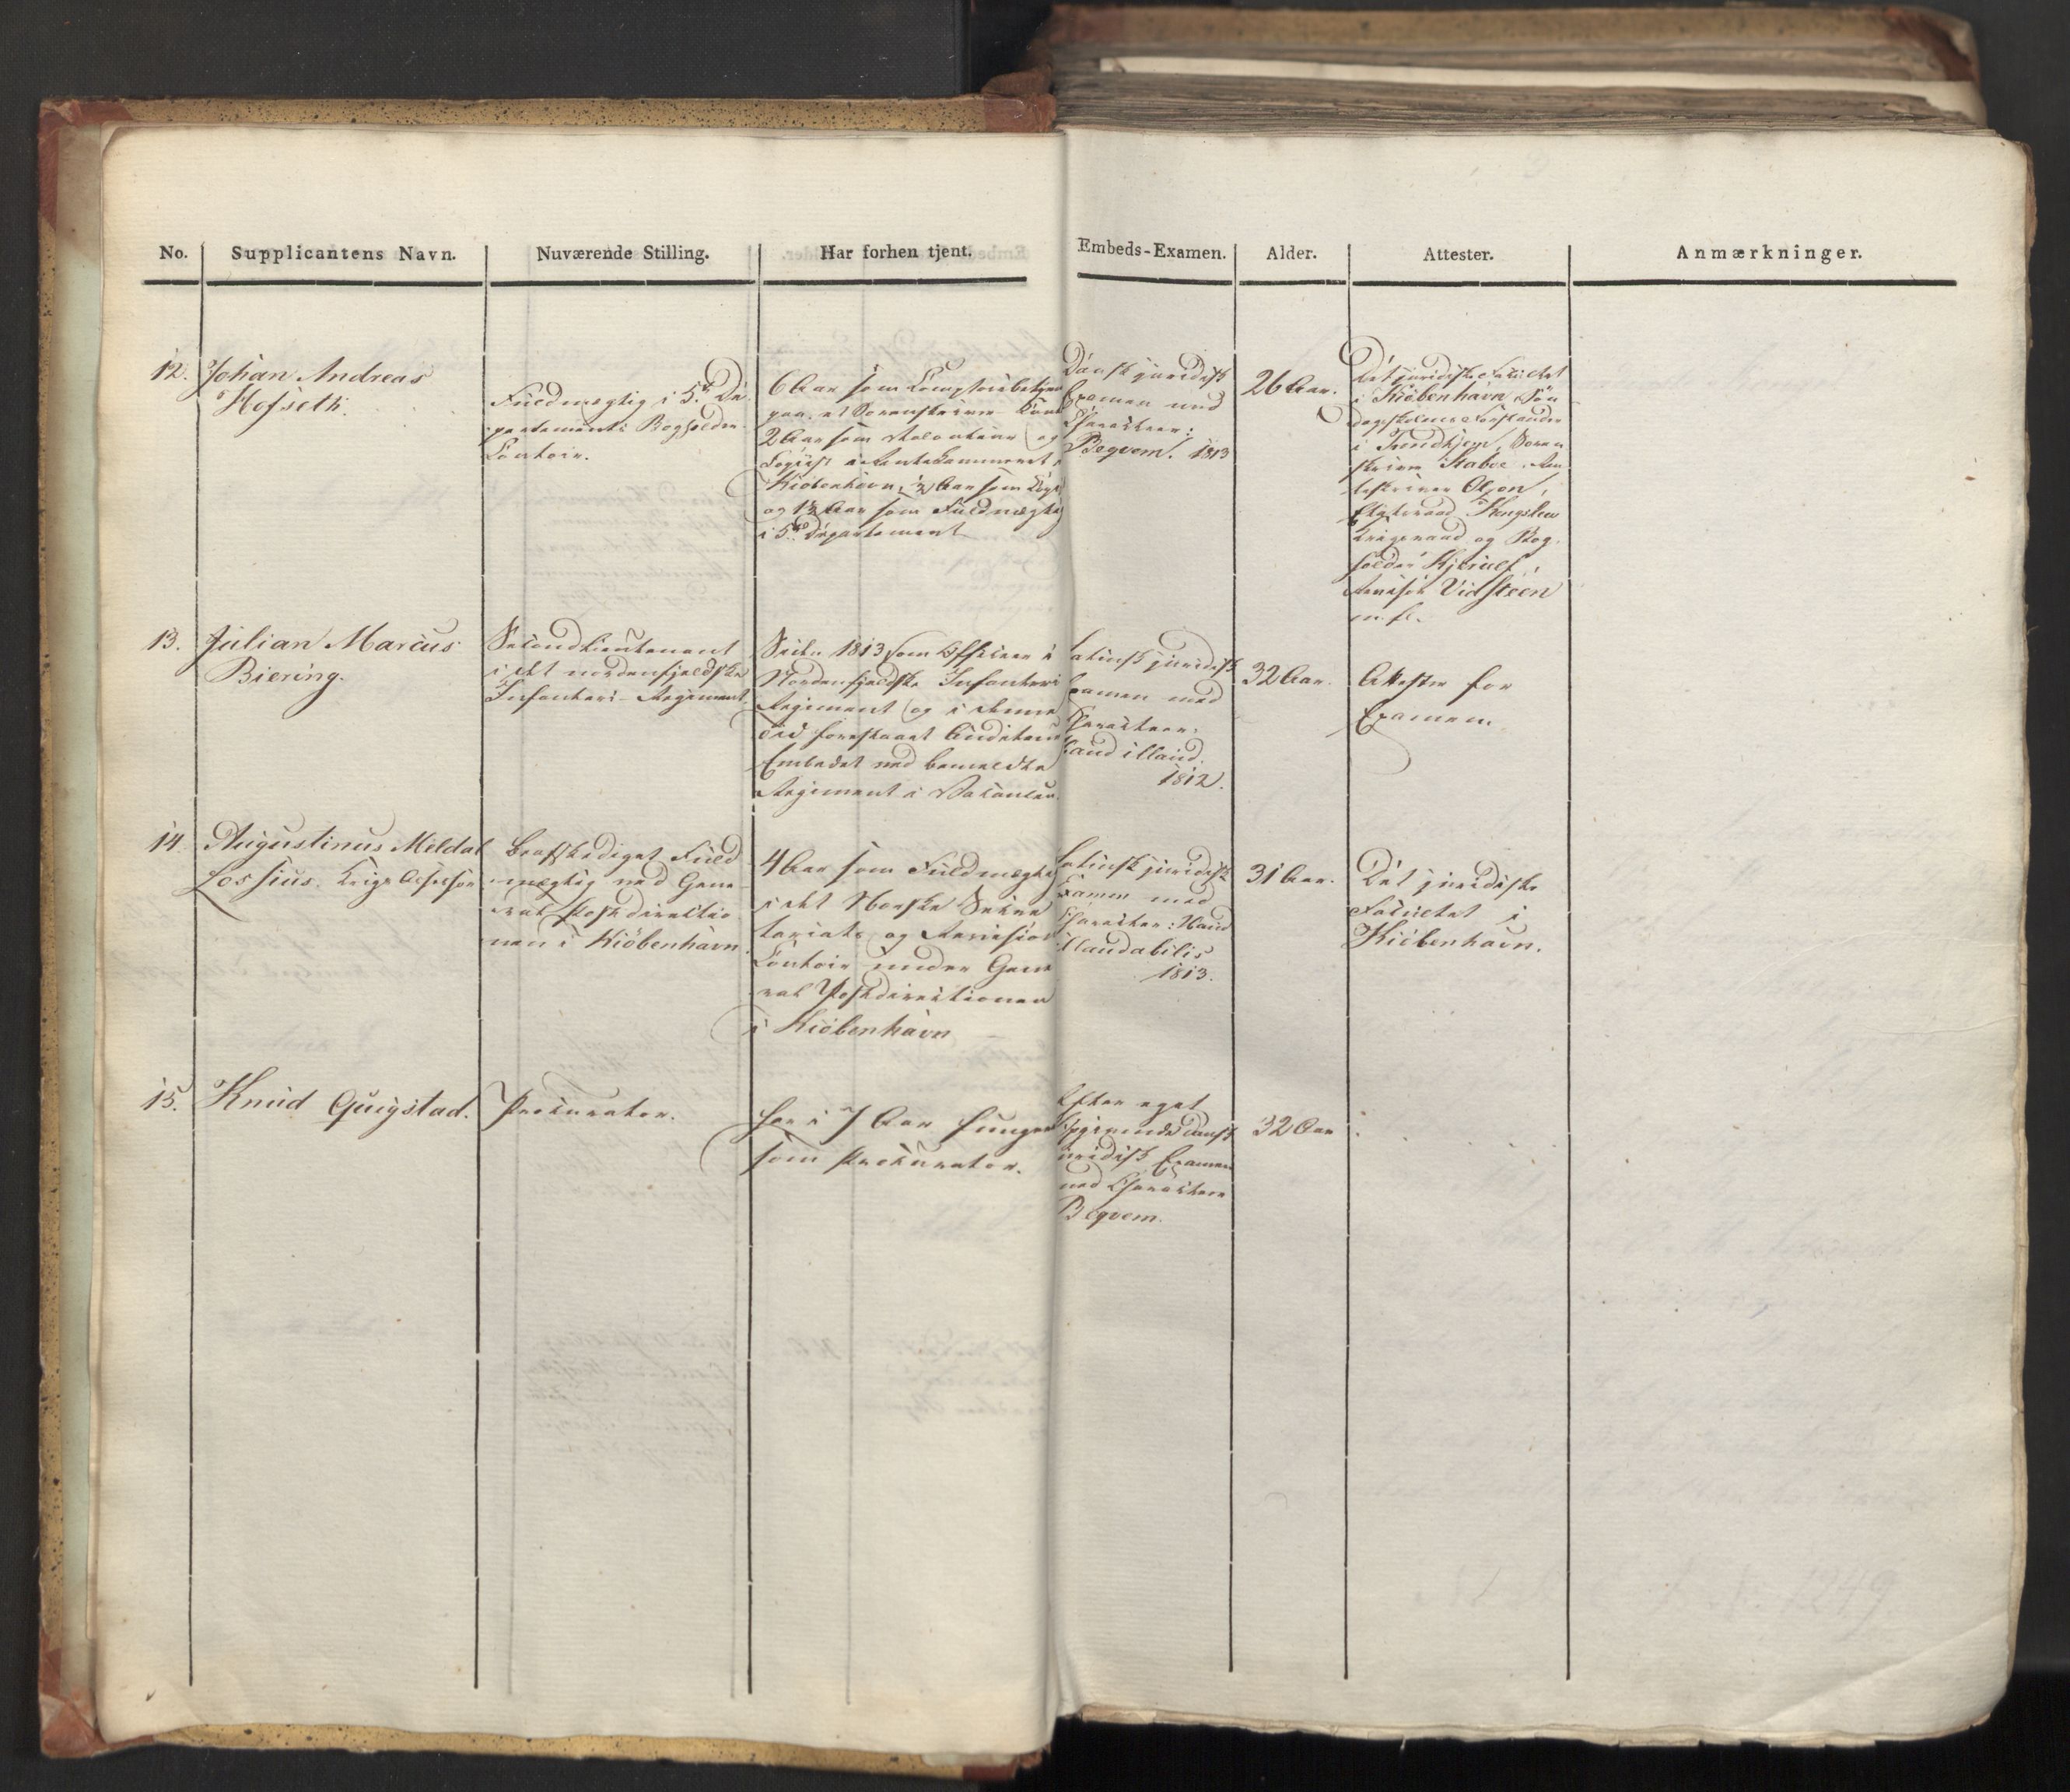 No. Supplicantens Navn. Nuværende Stilling. Har forhen tjent. Embeds-Examen. Alder. Attester. Anmærkninger.
12. Johan Andreas
Hofseth.
Fuldmægtig i 5te De-
partements Bogholder
Contoir.
6 Aar som
2 Aar som Volontair og
Copiist i Rentekammeret i
Kiöbenhavn, 1/2 Aar som
og 1 1/2 Aar som Fuldmægtig
i 5te Departement
Dansk juridisk
Examen med
Charakteer:
Beqvem. 1813
26 Aar.
Det juridiske Facultet
i Kiöbenhavn, Sön
dagsskolens Forstander
i Trondhjem, Soren
skriver Staboe
Olsen,
Etatsraad
Krigsraad og Bog-
holder Hjerulf,
Revisor Vidsteen
m. fl.
13. Julian Marcus
Biering.
Secondlieutenant
i det nordenfjeldske
Infanteri-Regiment.
Siden 1813 som Officeer i
Nordenfjeldske Infanteri
Regiment og i denne
Tid forestaaet Auditeur
Embedet ved bemeldte
Regiment i Vakancen.
Latinsk juridisk
Examen med
Charakteer:
Haud illaud.
1812.
32 Aar.
Attester for
Examen.
14. Augustinus Meldal
Lossius. Krigs Assessor
Beafskediget Fuld
mægtig ved Gene-
ral Postdirectio
nen i Kiöbenhavn.
4 Aar som Fuldmægtig
i det Norske Secre
tariats og Revisions
Contoir under Gene
ral Postdirectionen
i Kiöbenhavn
Latinsk juridisk
Examen med
Charakteer: Haud
illaudabilis
1813.
31 Aar.
Det juridiske
Facultet i
Kiöbenhavn.
15. Knud Qvigstad.
Procurator.
har i 7 Aar fungeret
som Procurator.
Efter eget
Opgivende dansk
juridisk Examen
med Charakteer
Beqvem.
32 Aar